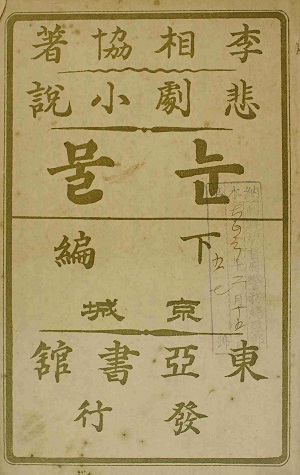 李相協著
悲劇小說
눈물
下編
京城
東亞書舘
發行